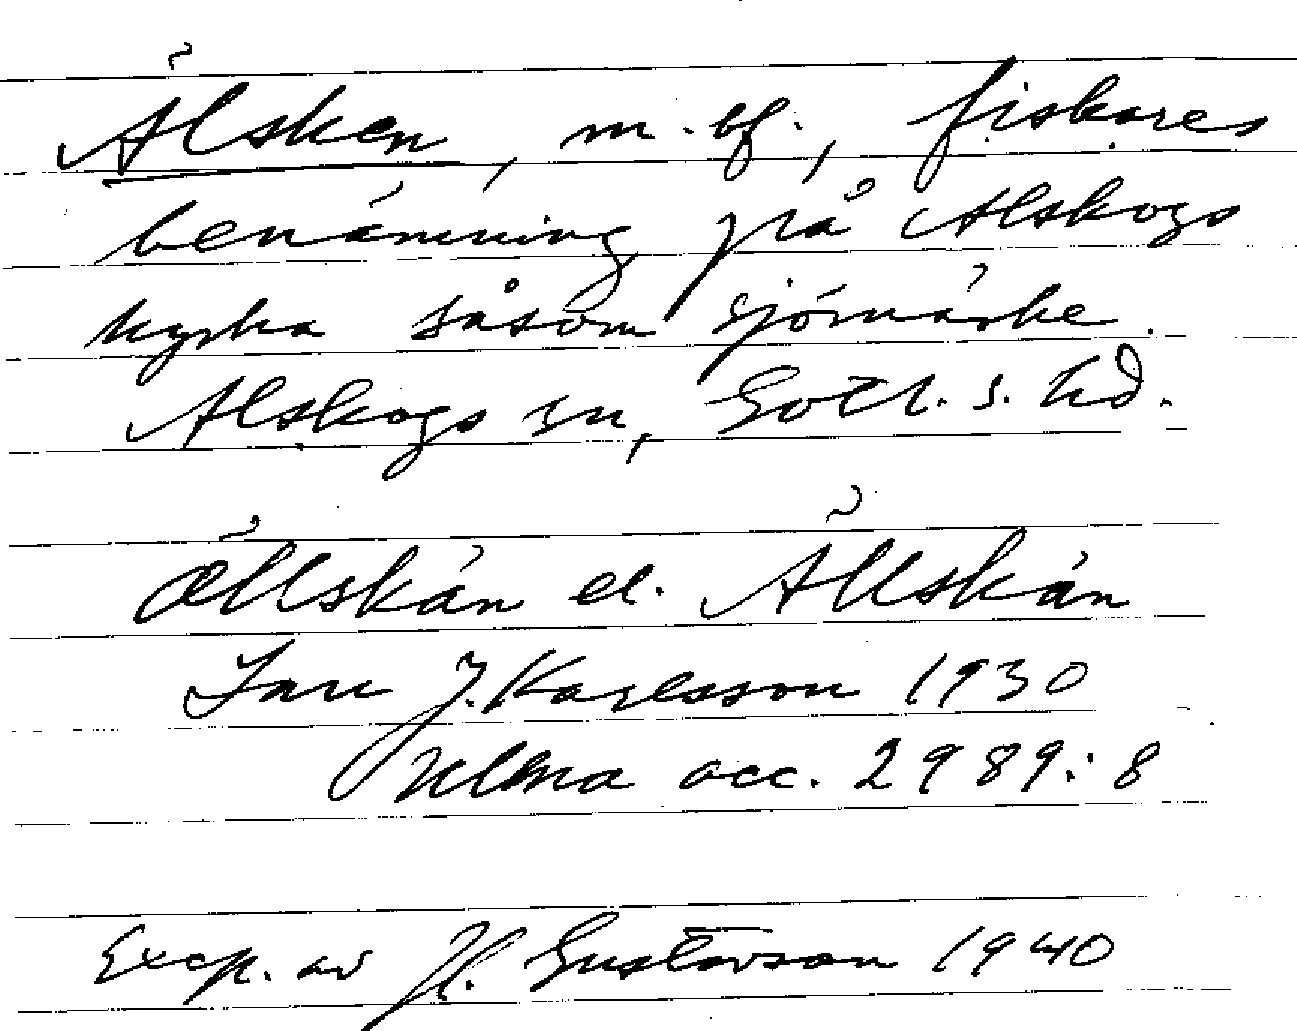 Ä̃lsken, m. bf., fiskares
benämning på Alskogs
kyrka såsom sjömärke.
Alskogs sn, Gotl. s. hd.
æ̃llskán el. Ä̃llskán
Lau J. Karlsson 1930
Ulma acc. 2989:8
Excp. av H. Gustavson 1940